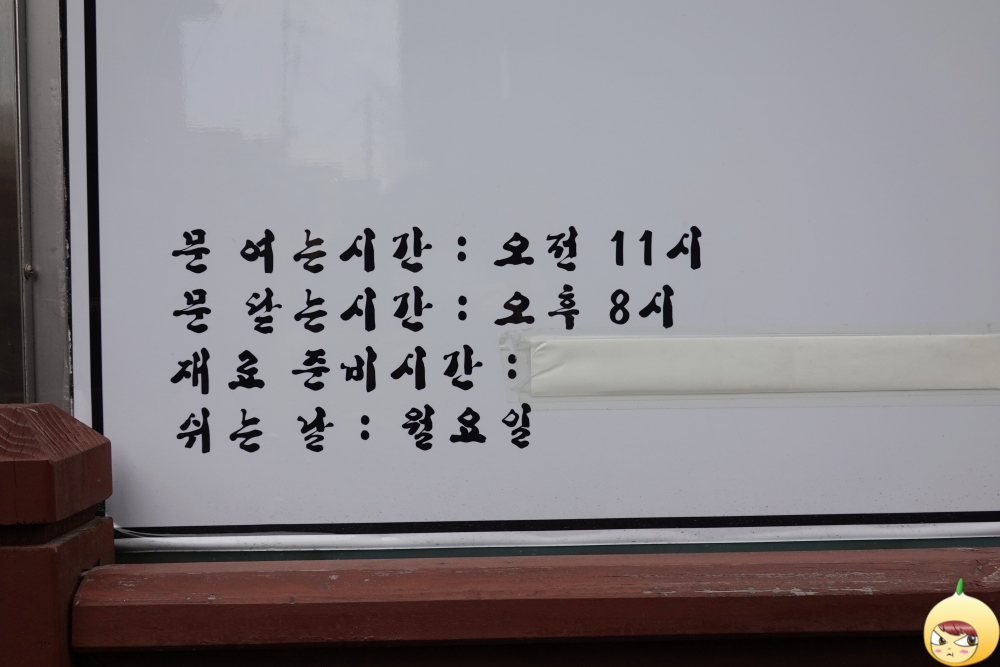 문 여는시간 : 오전 11시
문 닫는시간 : 오후 8시
재료 준비시간 :
쉬는 날 : 월요일